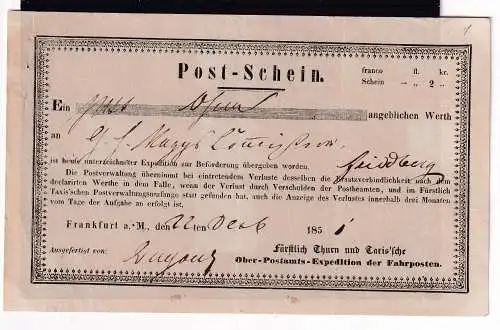 Post-Schein.
franco fl. kr.
Schein — „ 2 „
Ein angeblichen Werth
an
ist heute unterzeichneter Expedition zur Beförderung übergeben worden. Friedberg
Die Postverwaltung übernimmt bei eintretendem Verluste desselben die Ersatzverbindlichkeit nach dem
declarirten Werthe in dem Falle, wenn der Verlust durch Verschulden der Postbeamten, und im Fürstlich
Taxis'schen Postverwaltungsumfange statt gefunden hat, auch die Anzeige des Verlustes innerhalb drei Monaten
vom Tage der Aufgabe an erfolgt ist.
Frankfurt a. M., den 22ten Decb 1851
Ausgefertigt von: Fürstlich Thurn und Taxis'sche
Ober-Postamts-Expedition der Fahrposten.